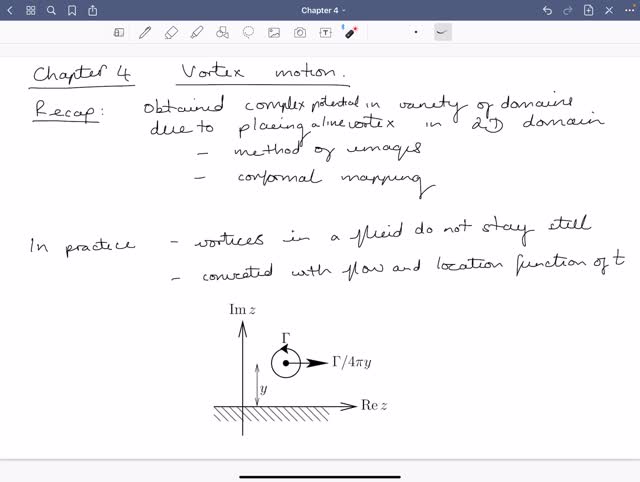 Chapter 4
Chapter 4 Vortex motion.
Recap: Obtained complex potential in variety of domains
due to placing a line vortex in 2D domain
- method of images
- conformal mapping
In practice - vortices in a fluid do not stay still
- convected with flow and location function of t
Im z
Γ
Γ/4πy
y
Re z